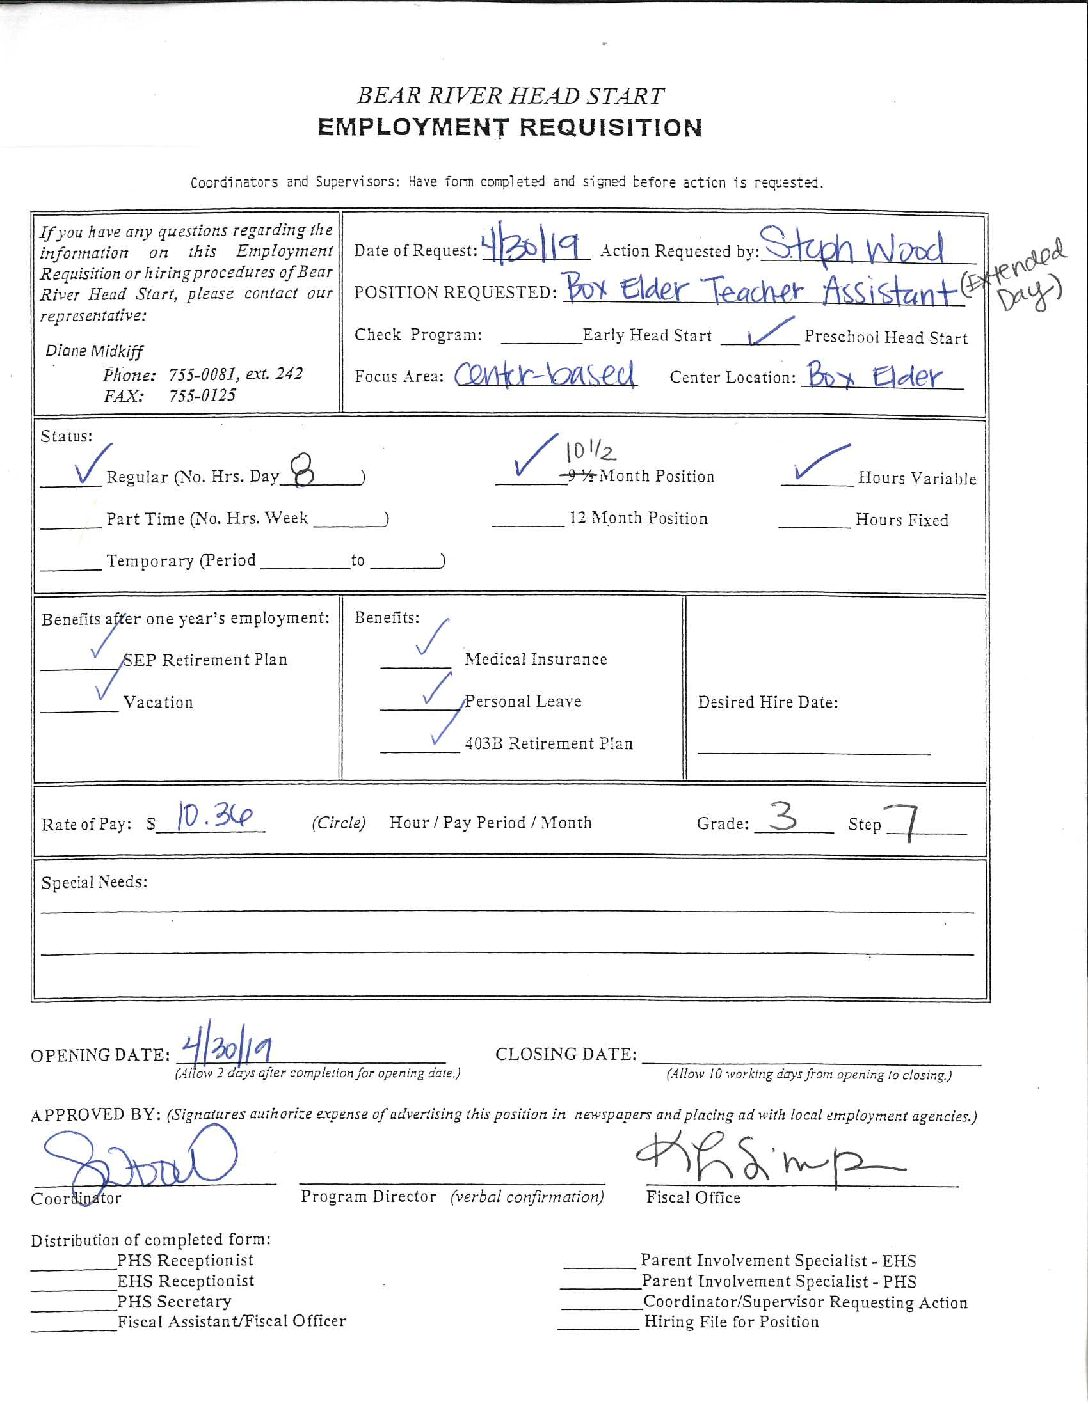 BEAR RIVER HEAD START
EMPLOYMENT REQUISITION
Coordinators and Supervisors: Have form completed and signed before action is requested.
If you have any questions regarding the
information on this Employment
Requisition or hiring procedures of Bear
River Head Start, please contact our
representative:
Diane Midkiff
Phone: 755-0081, ext. 242
FAX: 755-0125
Date of Request: 4/30/19 Action Requested by: Steph Wood
POSITION REQUESTED: Box Elder Teacher Assistant (Extended
Day)
Check Program: ________ Early Head Start ___✓___ Preschool Head Start
Focus Area: Center-based Center Location: Box Elder
Status:
✓ Regular (No. Hrs. Day 8 )
✓ 10 1/2
9 ½ Month Position
✓ Hours Variable
______ Part Time (No. Hrs. Week ______)
______ 12 Month Position
______ Hours Fixed
______ Temporary (Period ______ to ______)
Benefits after one year's employment:
✓ SEP Retirement Plan
✓ Vacation
Benefits:
✓ Medical Insurance
✓ Personal Leave
✓ 403B Retirement Plan
Desired Hire Date:
Rate of Pay: $ 10.36 (Circle) Hour / Pay Period / Month Grade: 3 Step 7
Special Needs:
OPENING DATE: 4/30/19 CLOSING DATE:
(Allow 2 days after completion for opening date.) (Allow 10 working days from opening to closing.)
APPROVED BY: (Signatures authorize expense of advertising this position in newspapers and placing ad with local employment agencies.)
Coordinator Program Director (verbal confirmation) Fiscal Office
Distribution of completed form:
______ PHS Receptionist
______ EHS Receptionist
______ PHS Secretary
______ Fiscal Assistant/Fiscal Officer
______ Parent Involvement Specialist - EHS
______ Parent Involvement Specialist - PHS
______ Coordinator/Supervisor Requesting Action
______ Hiring File for Position